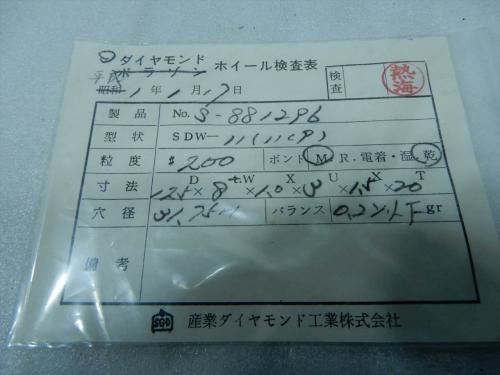 ダイヤモンド
ボラゾン ホイール検査表
平成
昭和 1年1月17日
検査 熱海
製品 No. S-881296
型状 SDW-
粒度 #200 ボンド M.R.電着・湿.乾
寸法 D W X U X T
125×8×1.0×3×1.5×20
穴径 31.75 バランス 0.2 以下 gr
備考
SGD 産業ダイヤモンド工業株式会社